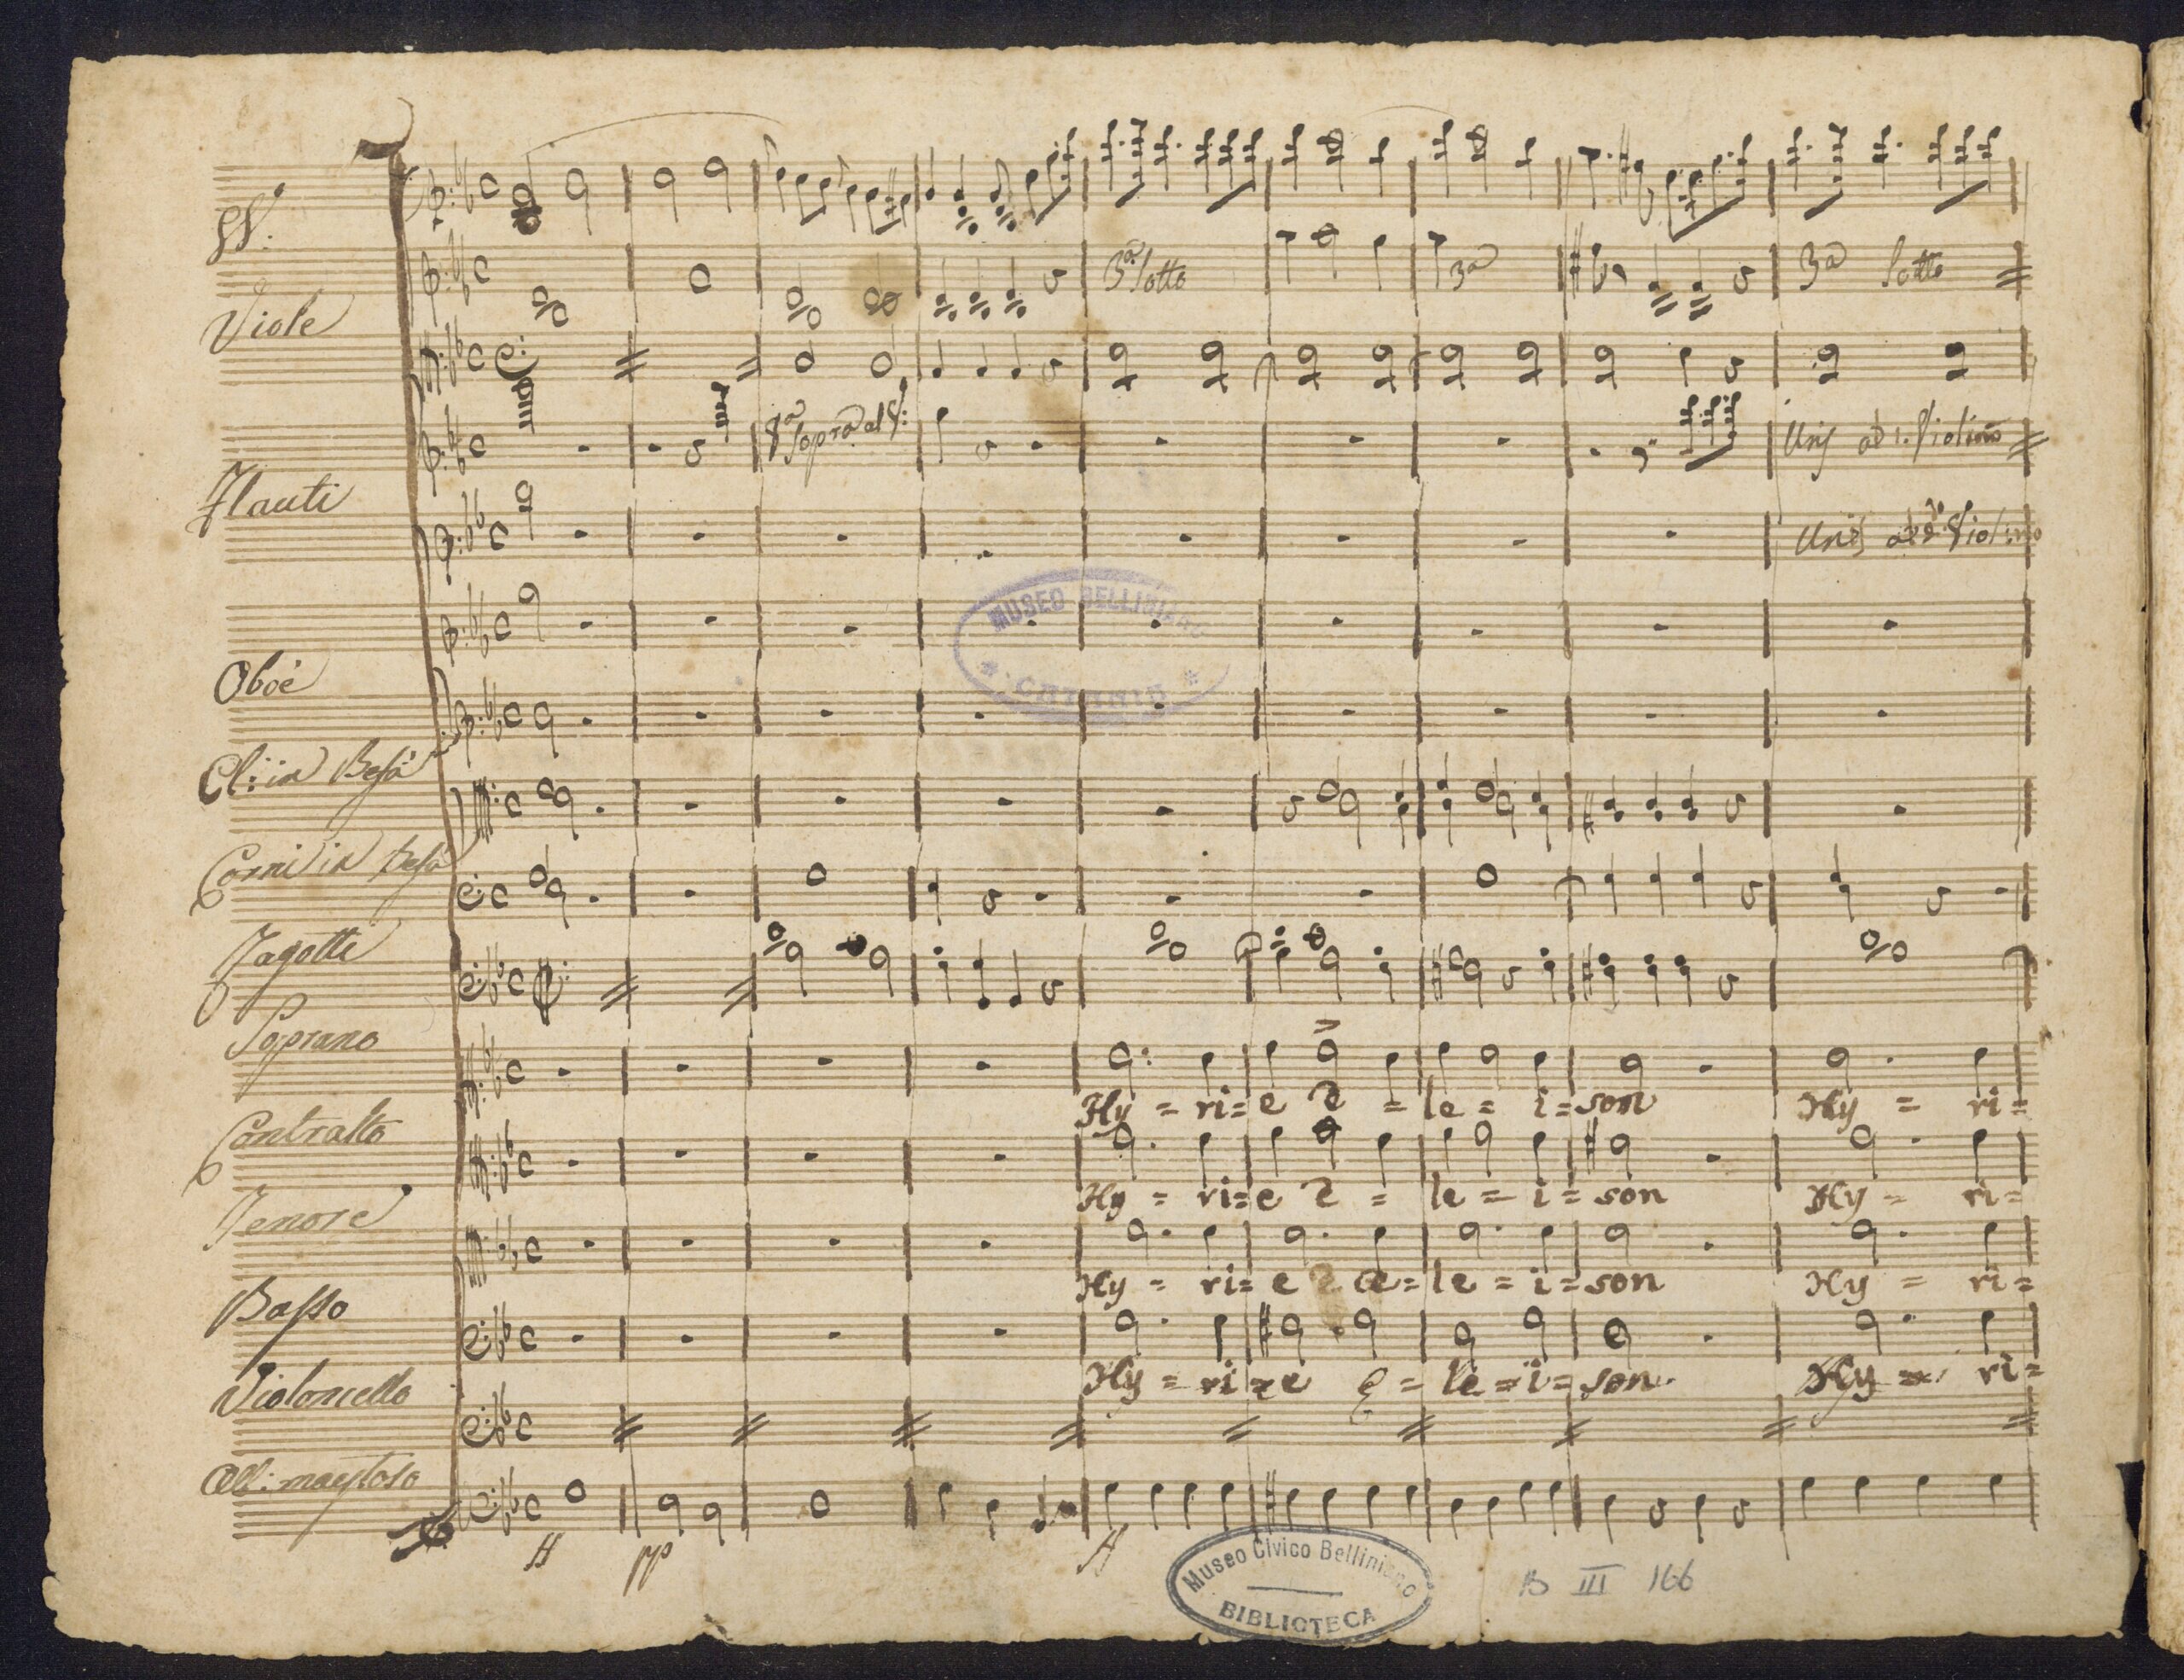 VV.
Viole
3ª sotto
3ª
3ª sotto
8ª sopra al V:
Unis ad 1. Violino
Flauti
Unis al 2º Violino
MUSEO BELLINIANO
* CATANIA *
Oboè
Cl: in Befà
Corni in Befà
Fagotti
Soprano
Ky = ri = e e = le = i = son Ky = ri =
Contralto
Ky = ri = e e = le = i = son Ky = ri =
Tenore
Ky = ri = e e = le = i = son Ky = ri =
Basso
Ky = ri = e e = le = i = son. Ky = ri =
Violoncello
All: maestoso
ff pp ff
Museo Civico Belliniano
BIBLIOTECA
B III 166